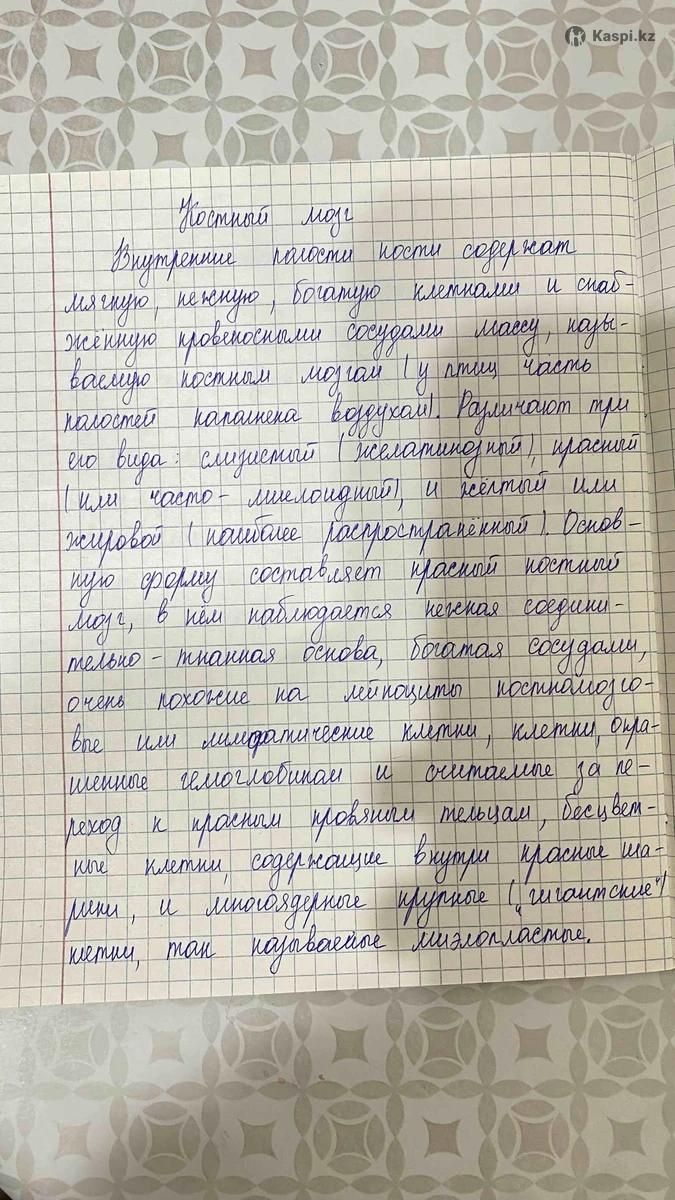 Kaspi.kz
Костный мозг
Внутренние полости кости содержат
мягкую, нежную, богатую клетками и снаб-
жённую кровеносными сосудами массу, назы-
ваемую костным мозгом (у птиц часть
полостей наполнена воздухом). Различают три
его вида: слизистый (желатинозный), красный
(или часто - лимоидный), и жёлтый или
жировой (наиболее распространённый). Основ-
ную форму составляет красный костный
мозг, в нём наблюдается нежная соедини-
тельно - тканная основа, богатая сосудами,
очень похожие на лейкоциты костномозго-
вые или лимфатические клетки, клетки, окра-
шенные гемоглобином и считаемые за пе-
реход к красным кровяным тельцам, бесцвет-
ные клетки, содержащие внутри красные ша-
рики, и многоядерные крупные ("гигантские")
клетки, так называемые миэлопласты.